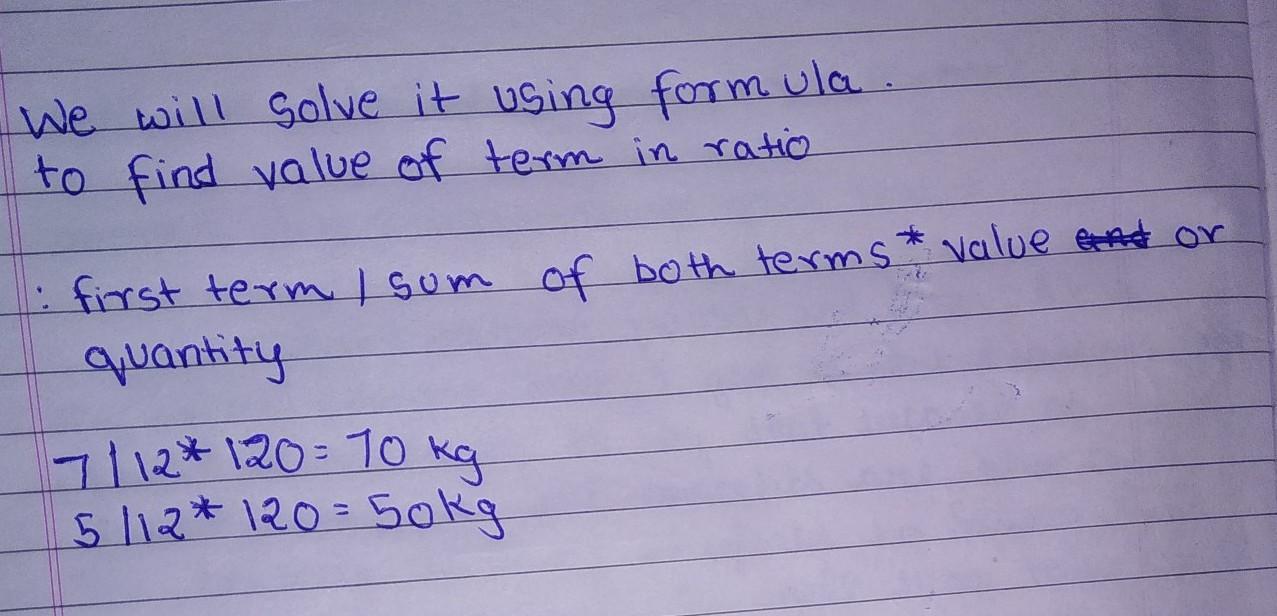 We will solve it using formula.
to find value of term in ratio
: first term / sum of both terms * value and or
quantity
7/12 * 120 = 70 kg
5/12 * 120 = 50kg